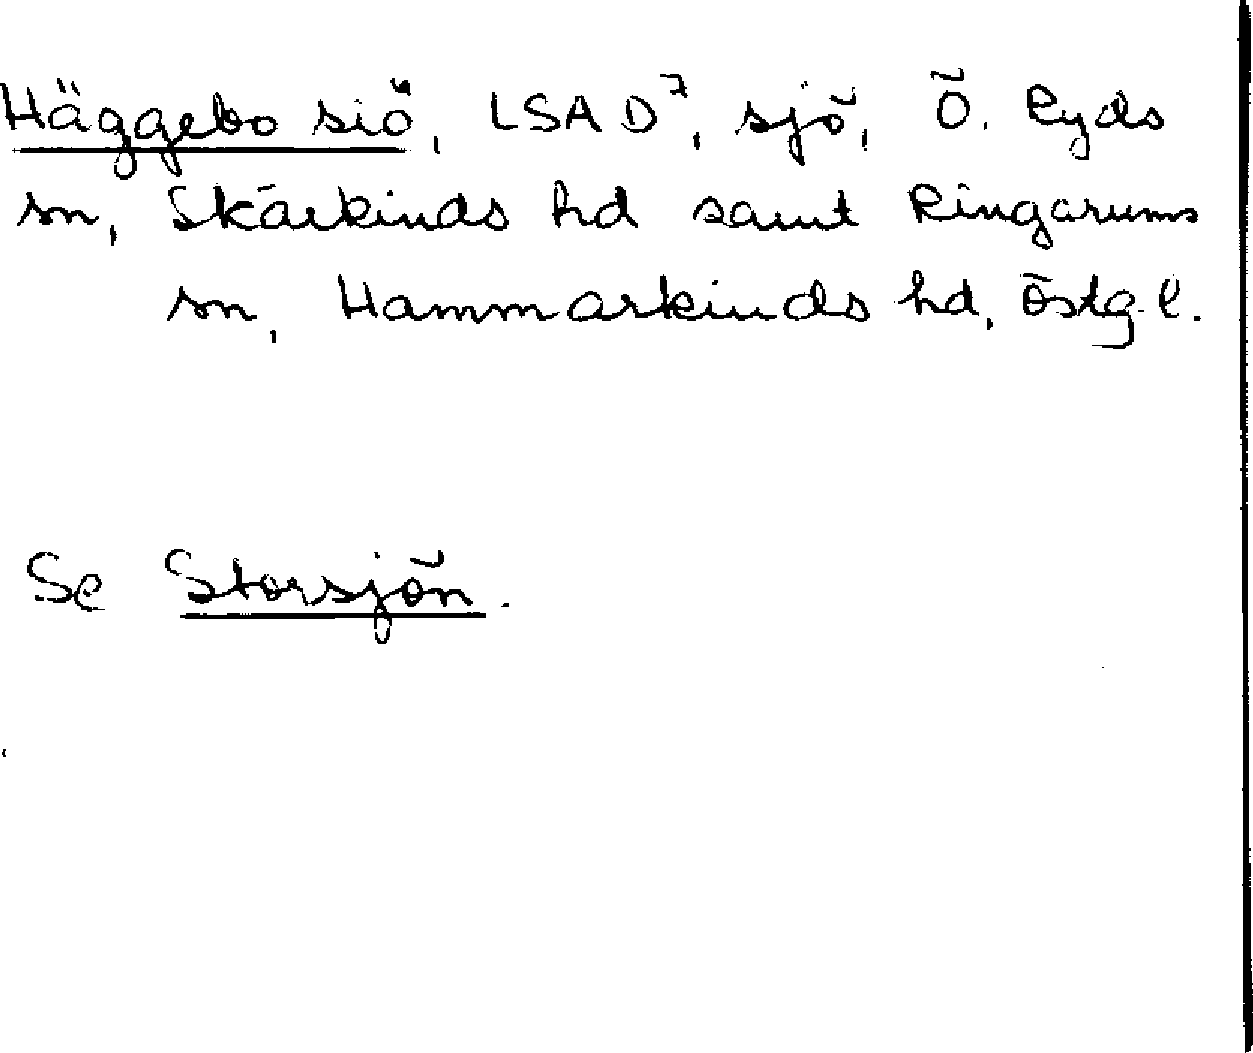 Häggebo siö, LSA D⁷, sjö, Ö. Ryds
sn, Skärkinds hd samt Ringarums
sn, Hammarkinds hd, Östg. l.
Se Storsjön.